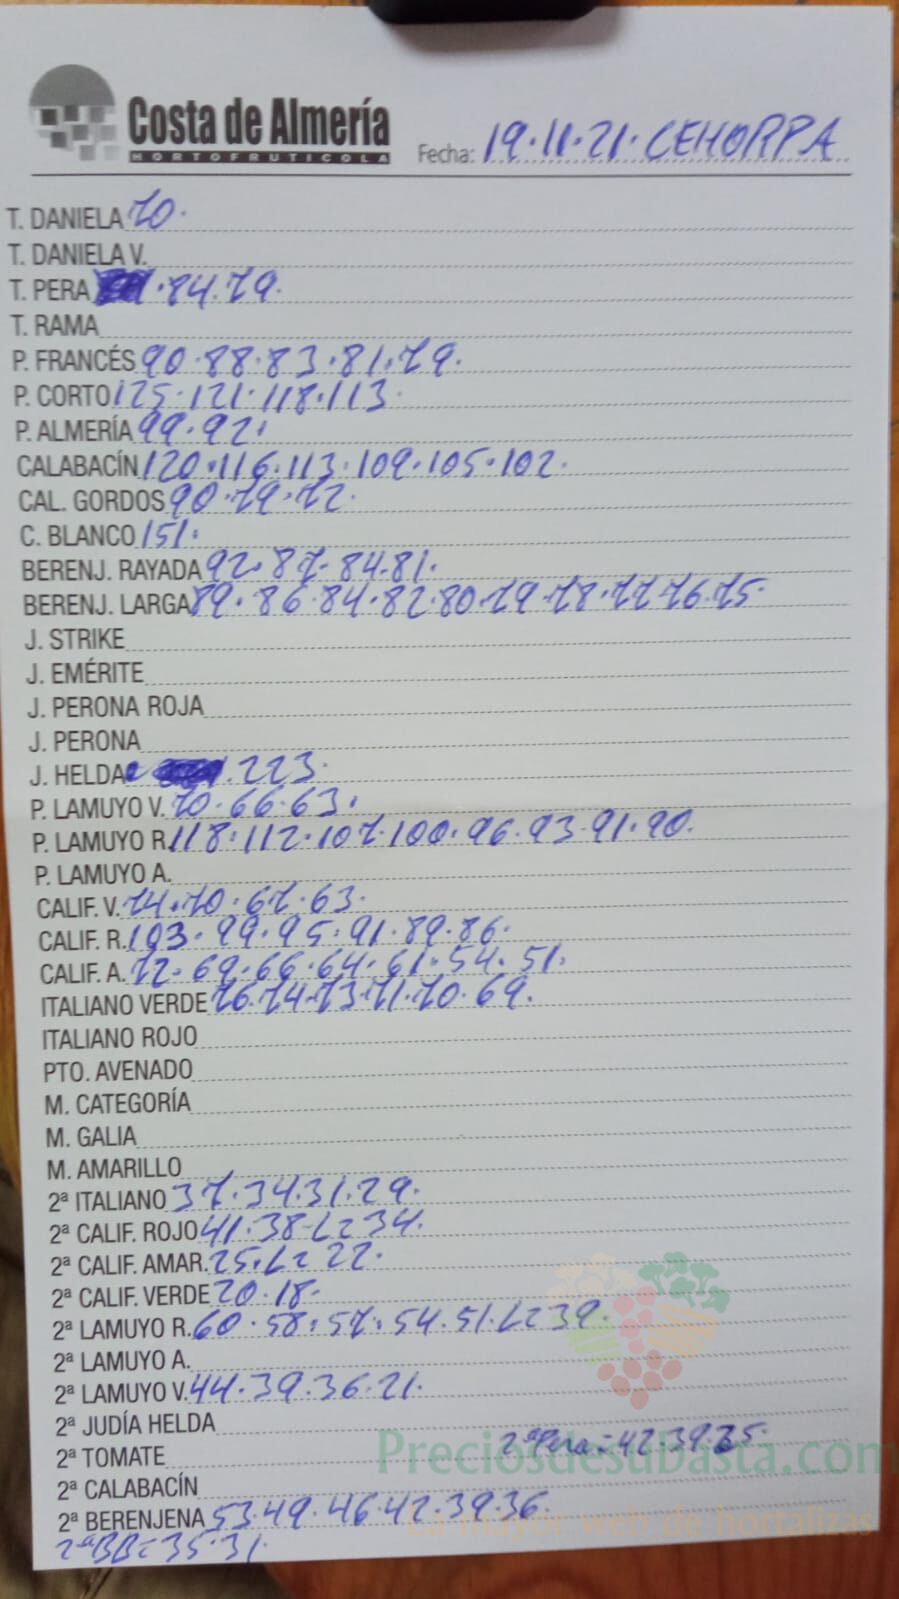 Costa de Almería
HORTOFRUTICOLA
Fecha: 19.11.21. CEHORPA
T. DANIELA 70.
T. DANIELA V.
T. PERA . 84.79.
T. RAMA
P. FRANCÉS 90.88.83.81.79.
P. CORTO 125.121.118.113.
P. ALMERÍA 99.92.
CALABACÍN 120.116.113.109.105.102.
CAL. GORDOS 90.79.72.
C. BLANCO 151.
BERENJ. RAYADA 92.87.84.81.
BERENJ. LARGA 89.86.84.82.80.79.78.77.76.75.
J. STRIKE
J. EMÉRITE
J. PERONA ROJA
J. PERONA
J. HELDA . 223.
P. LAMUYO V. 70.66.63.
P. LAMUYO R. 118.112.107.100.96.93.91.90.
P. LAMUYO A.
CALIF. V. 74.70.67.63.
CALIF. R. 103.99.95.91.89.86.
CALIF. A. 72.69.66.64.61.54.51.
ITALIANO VERDE 76.74.73.71.70.69.
ITALIANO ROJO
PTO. AVENADO
M. CATEGORÍA
M. GALIA
M. AMARILLO
2ª ITALIANO 37.34.31.29.
2ª CALIF. ROJO 41.38-L2 34.
2ª CALIF. AMAR. 25.L2 22.
2ª CALIF. VERDE 20.18.
2ª LAMUYO R. 60.58.57.54.51.L2 39.
2ª LAMUYO A.
2ª LAMUYO V. 44.39.36.21.
2ª JUDÍA HELDA
2ª Pera = 42.39.35.
2ª TOMATE
Preciosdesubasta.com
2ª CALABACÍN
2ª BERENJENA 53.49.46.42.39.36.
La mayor web de hortalizas
2ªBB=35.31.